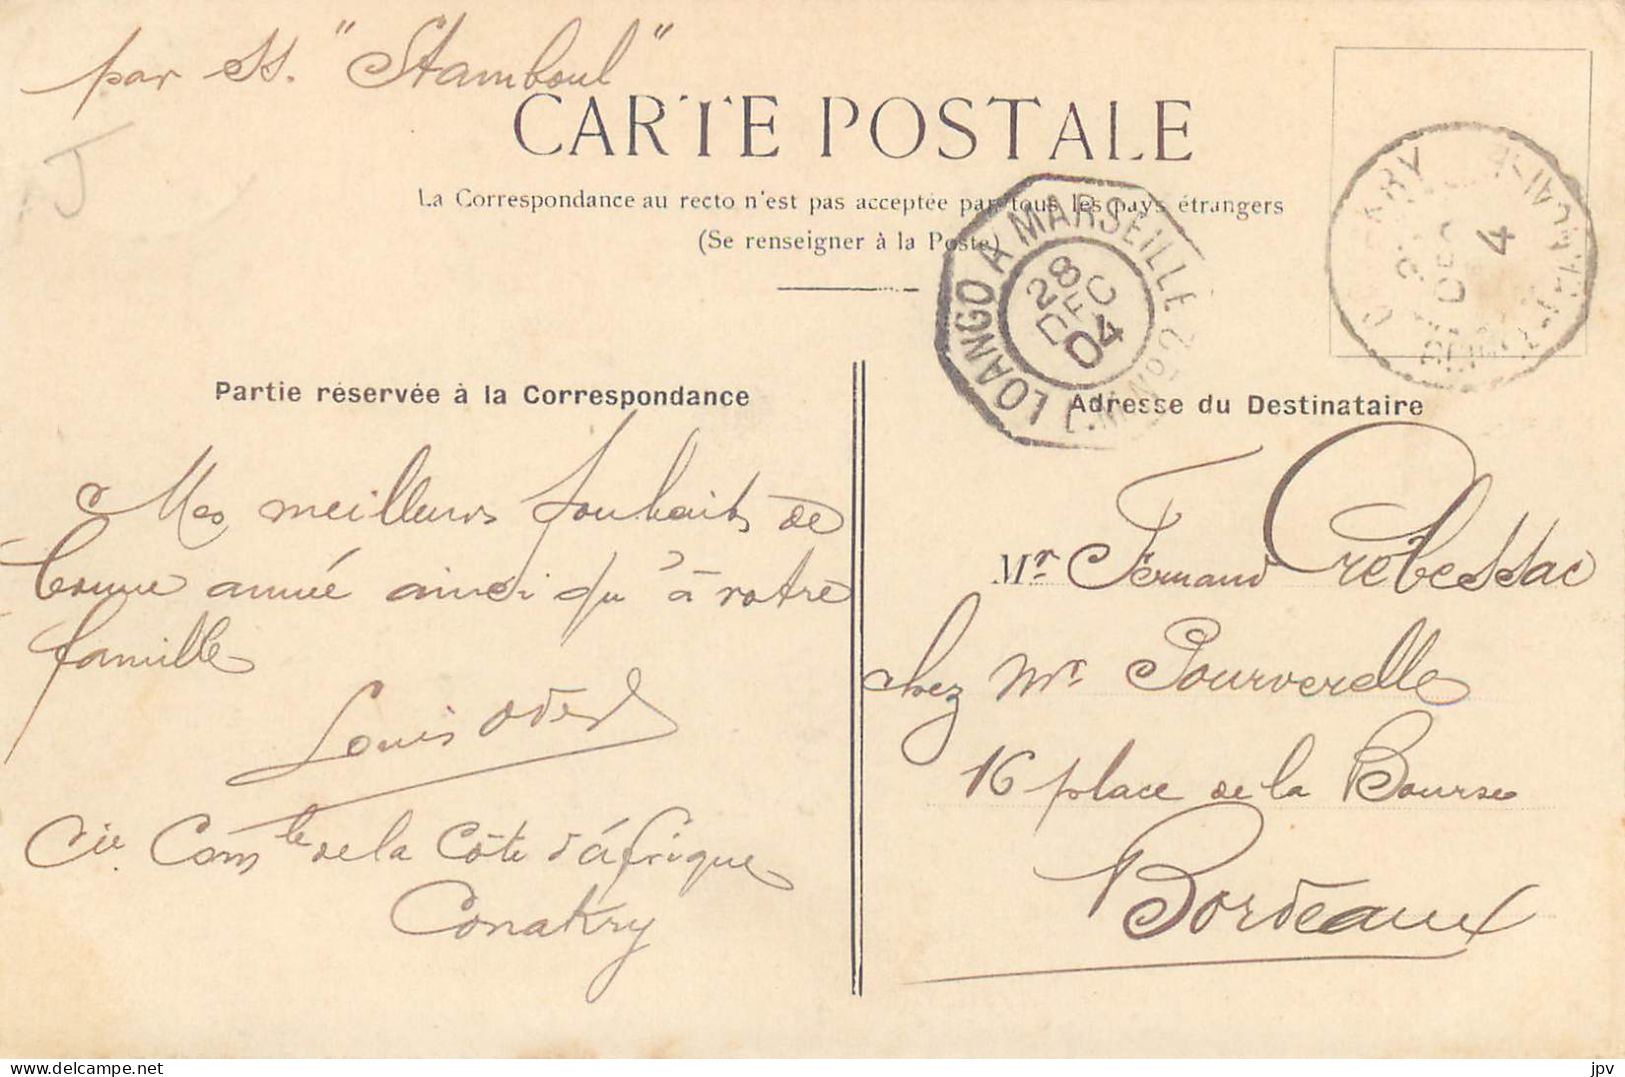 par ss. "Stamboul"
J
CARTE POSTALE
La Correspondance au recto n'est pas acceptée par tous les pays étrangers
(Se renseigner à la Poste)
LOANGO A MARSEILLE L.M. Nº2
28
DEC
04
CONAKRY
DEC
4
Partie réservée à la Correspondance
Mes meilleurs souhaits de
bonne année ainsi qu'à votre
famille
Louis
Cie. Comle de la Côte d'Afrique
Conakry
Adresse du Destinataire
Mr Fernand Crebessac
chez Mr Pourverelle
16 place de la Bourse
Bordeaux
jpv